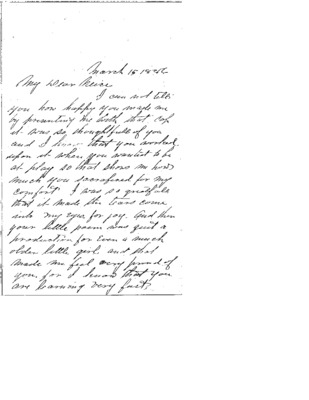 March 15
My Dear Neice
I can not tell
you how happy you made me
by presenting me with that cup
it was so thoughtfull of you
and I know that you worked
upon it when you wanted to be
at play so that shows me how
much you sacraficed for my
comfort I was so gratefull
that it made the tears come
into my eyes for joy. And then
your little poem was quit a
production for even a much
older little girl and that
made me feel very proud of
you, for I know that you
are learning very fast.